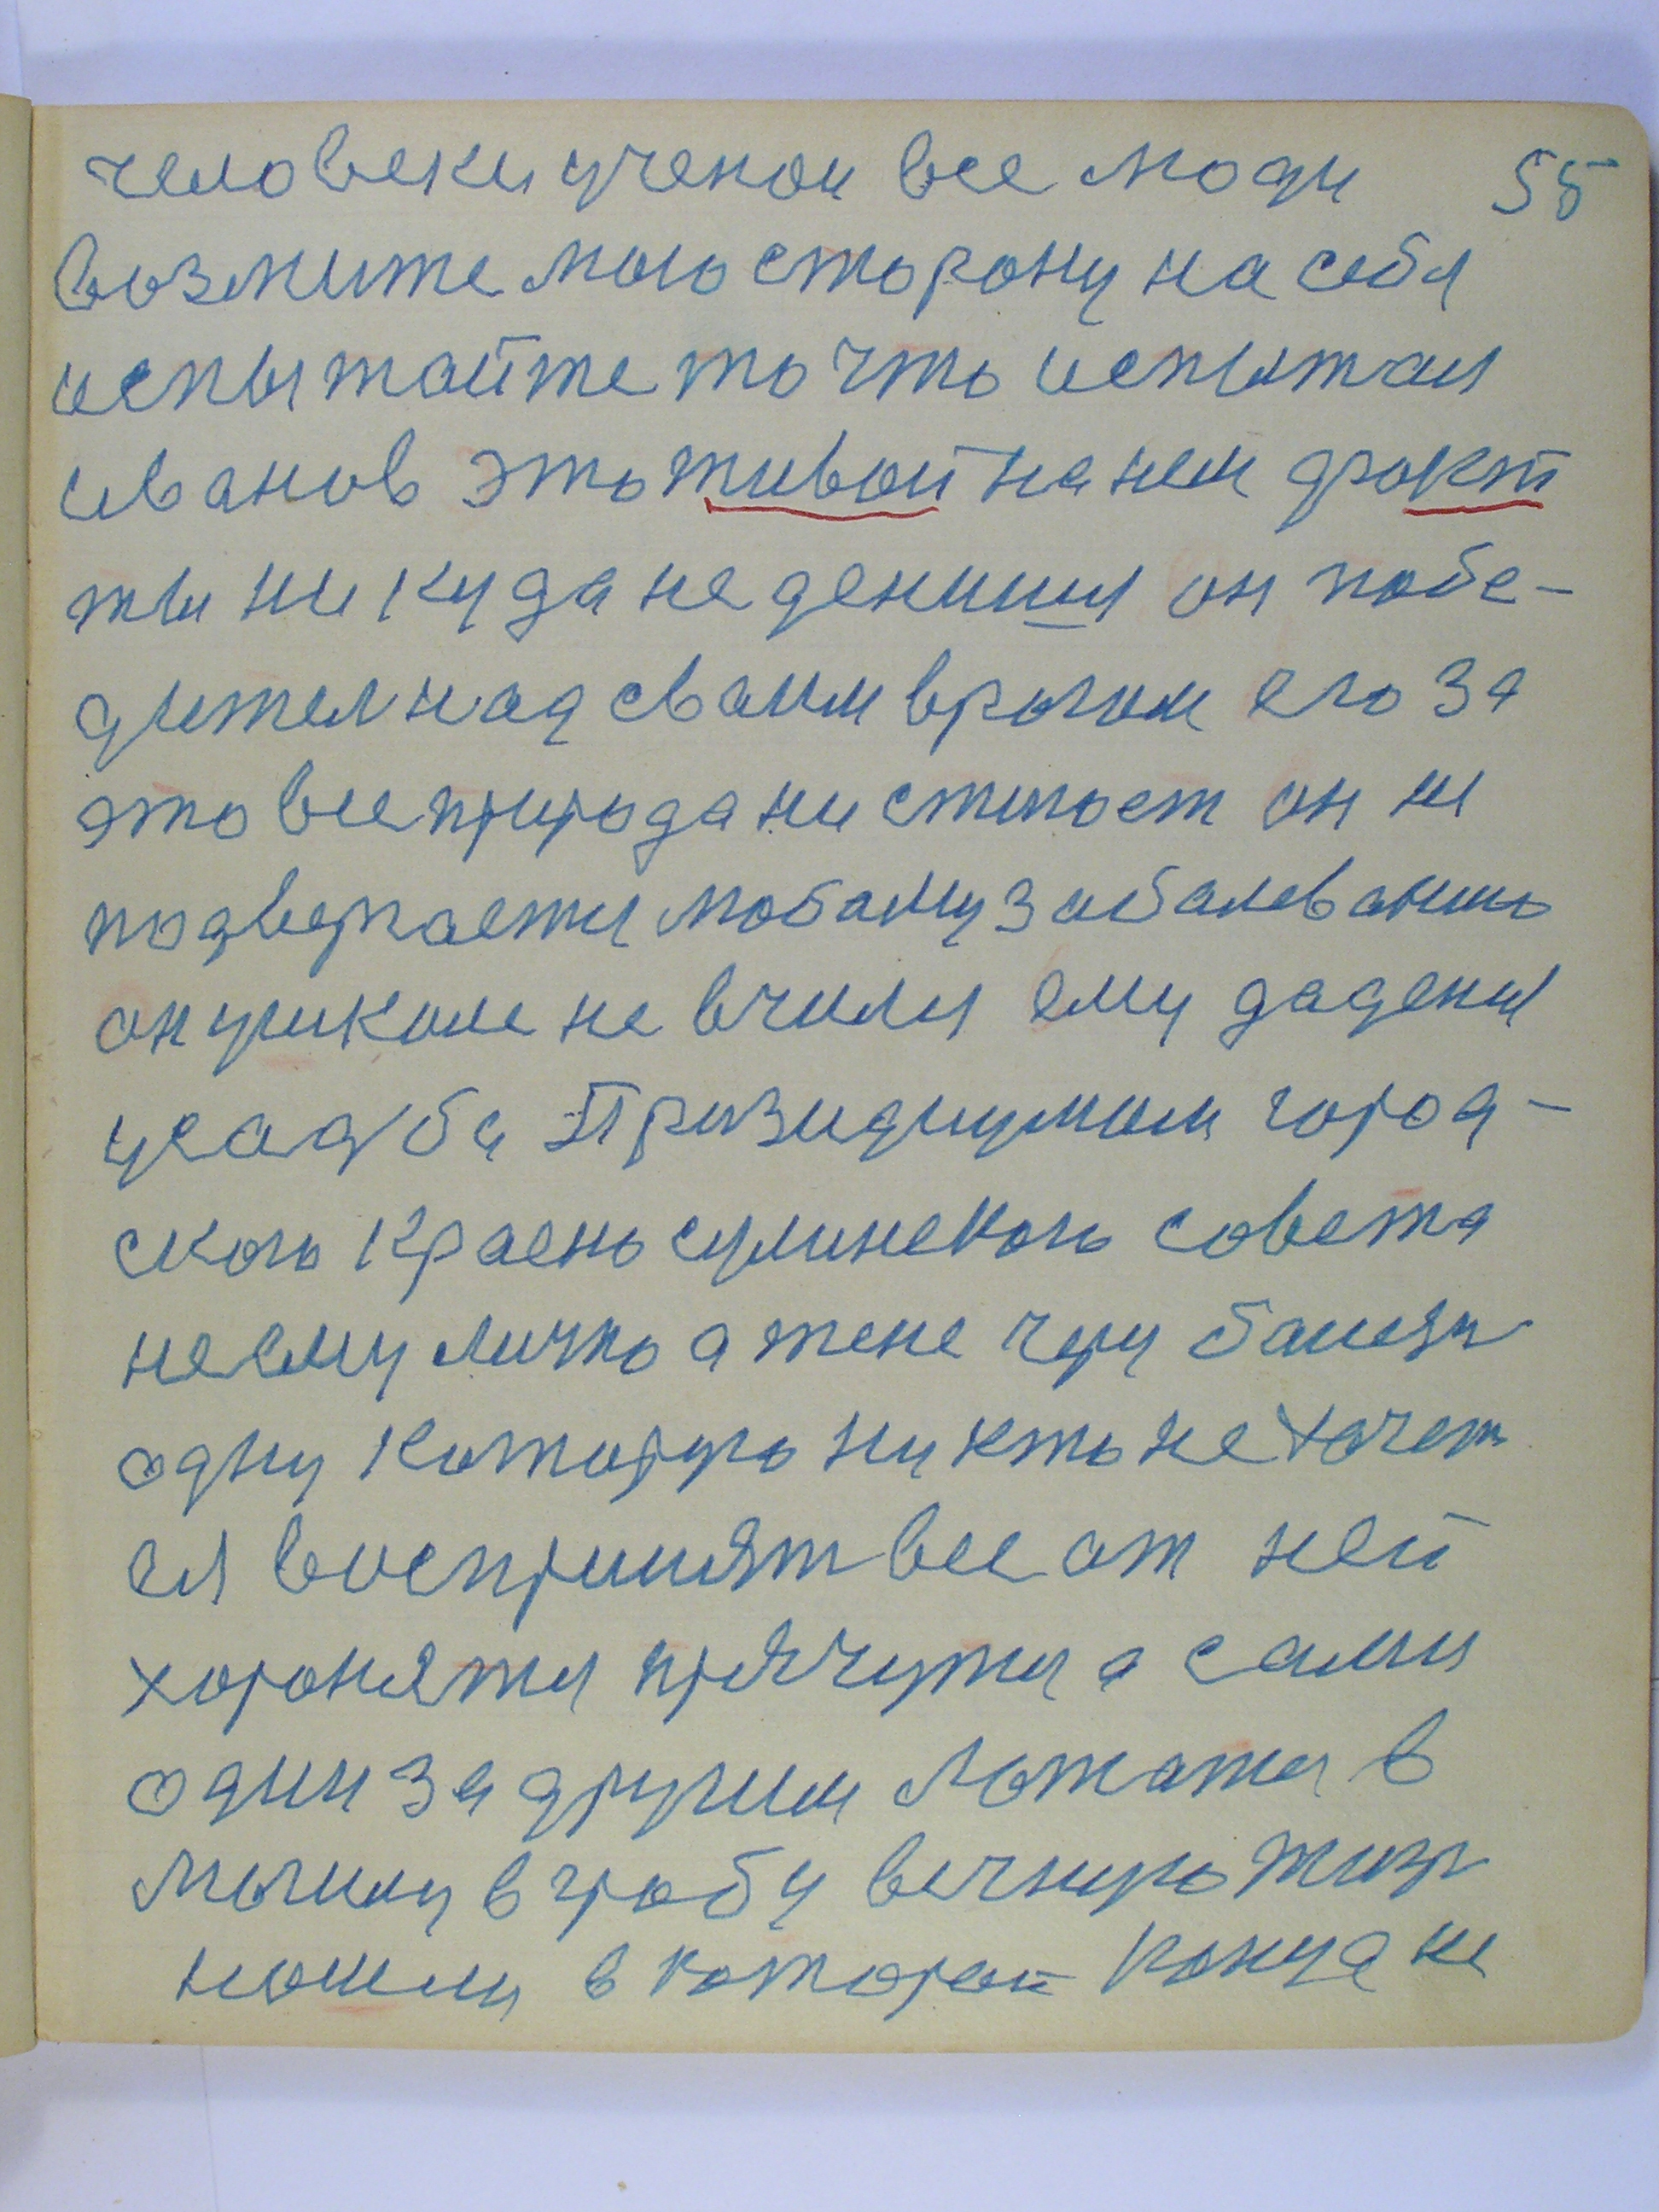 человеки ученои все люди 55
возмите мою сторону на себя
испытайте то что испытал
иванов это живой на нем факт
ты ни куда не денишся он побе-
дител над сваим врагом его за
это все природа ни стигает он ни
подвергается любаму забалеванию
он ушколе не вчился ему дадена
усадба Призидиумом город-
ского Красно сулинского совета
не ему лично а жене чуру балезн
одну которую ни кто не хочет
ся воспринят все от ней
хоронятся прячутся а сами
один за другим ложатся в
могилу в гробу вечную жизн
нашли в которой конца не